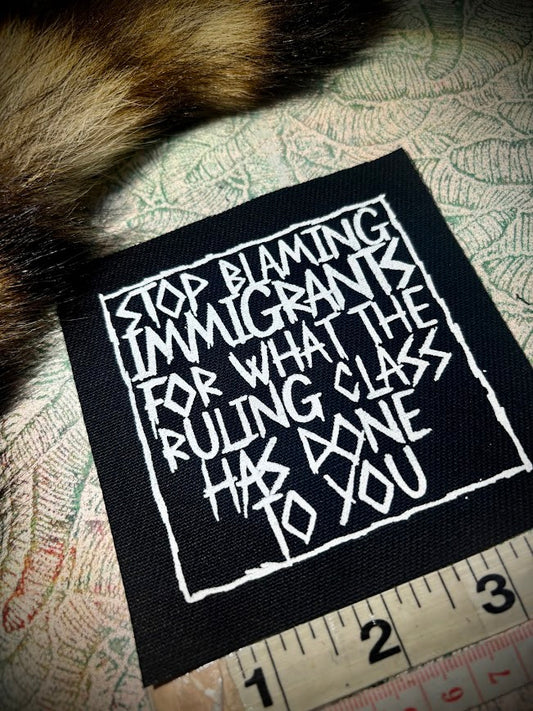 STOP BLAMING
IMMIGRANTS
FOR WHAT THE
RULING CLASS
HAS DONE
TO YOU
1 2 3
5 6 7